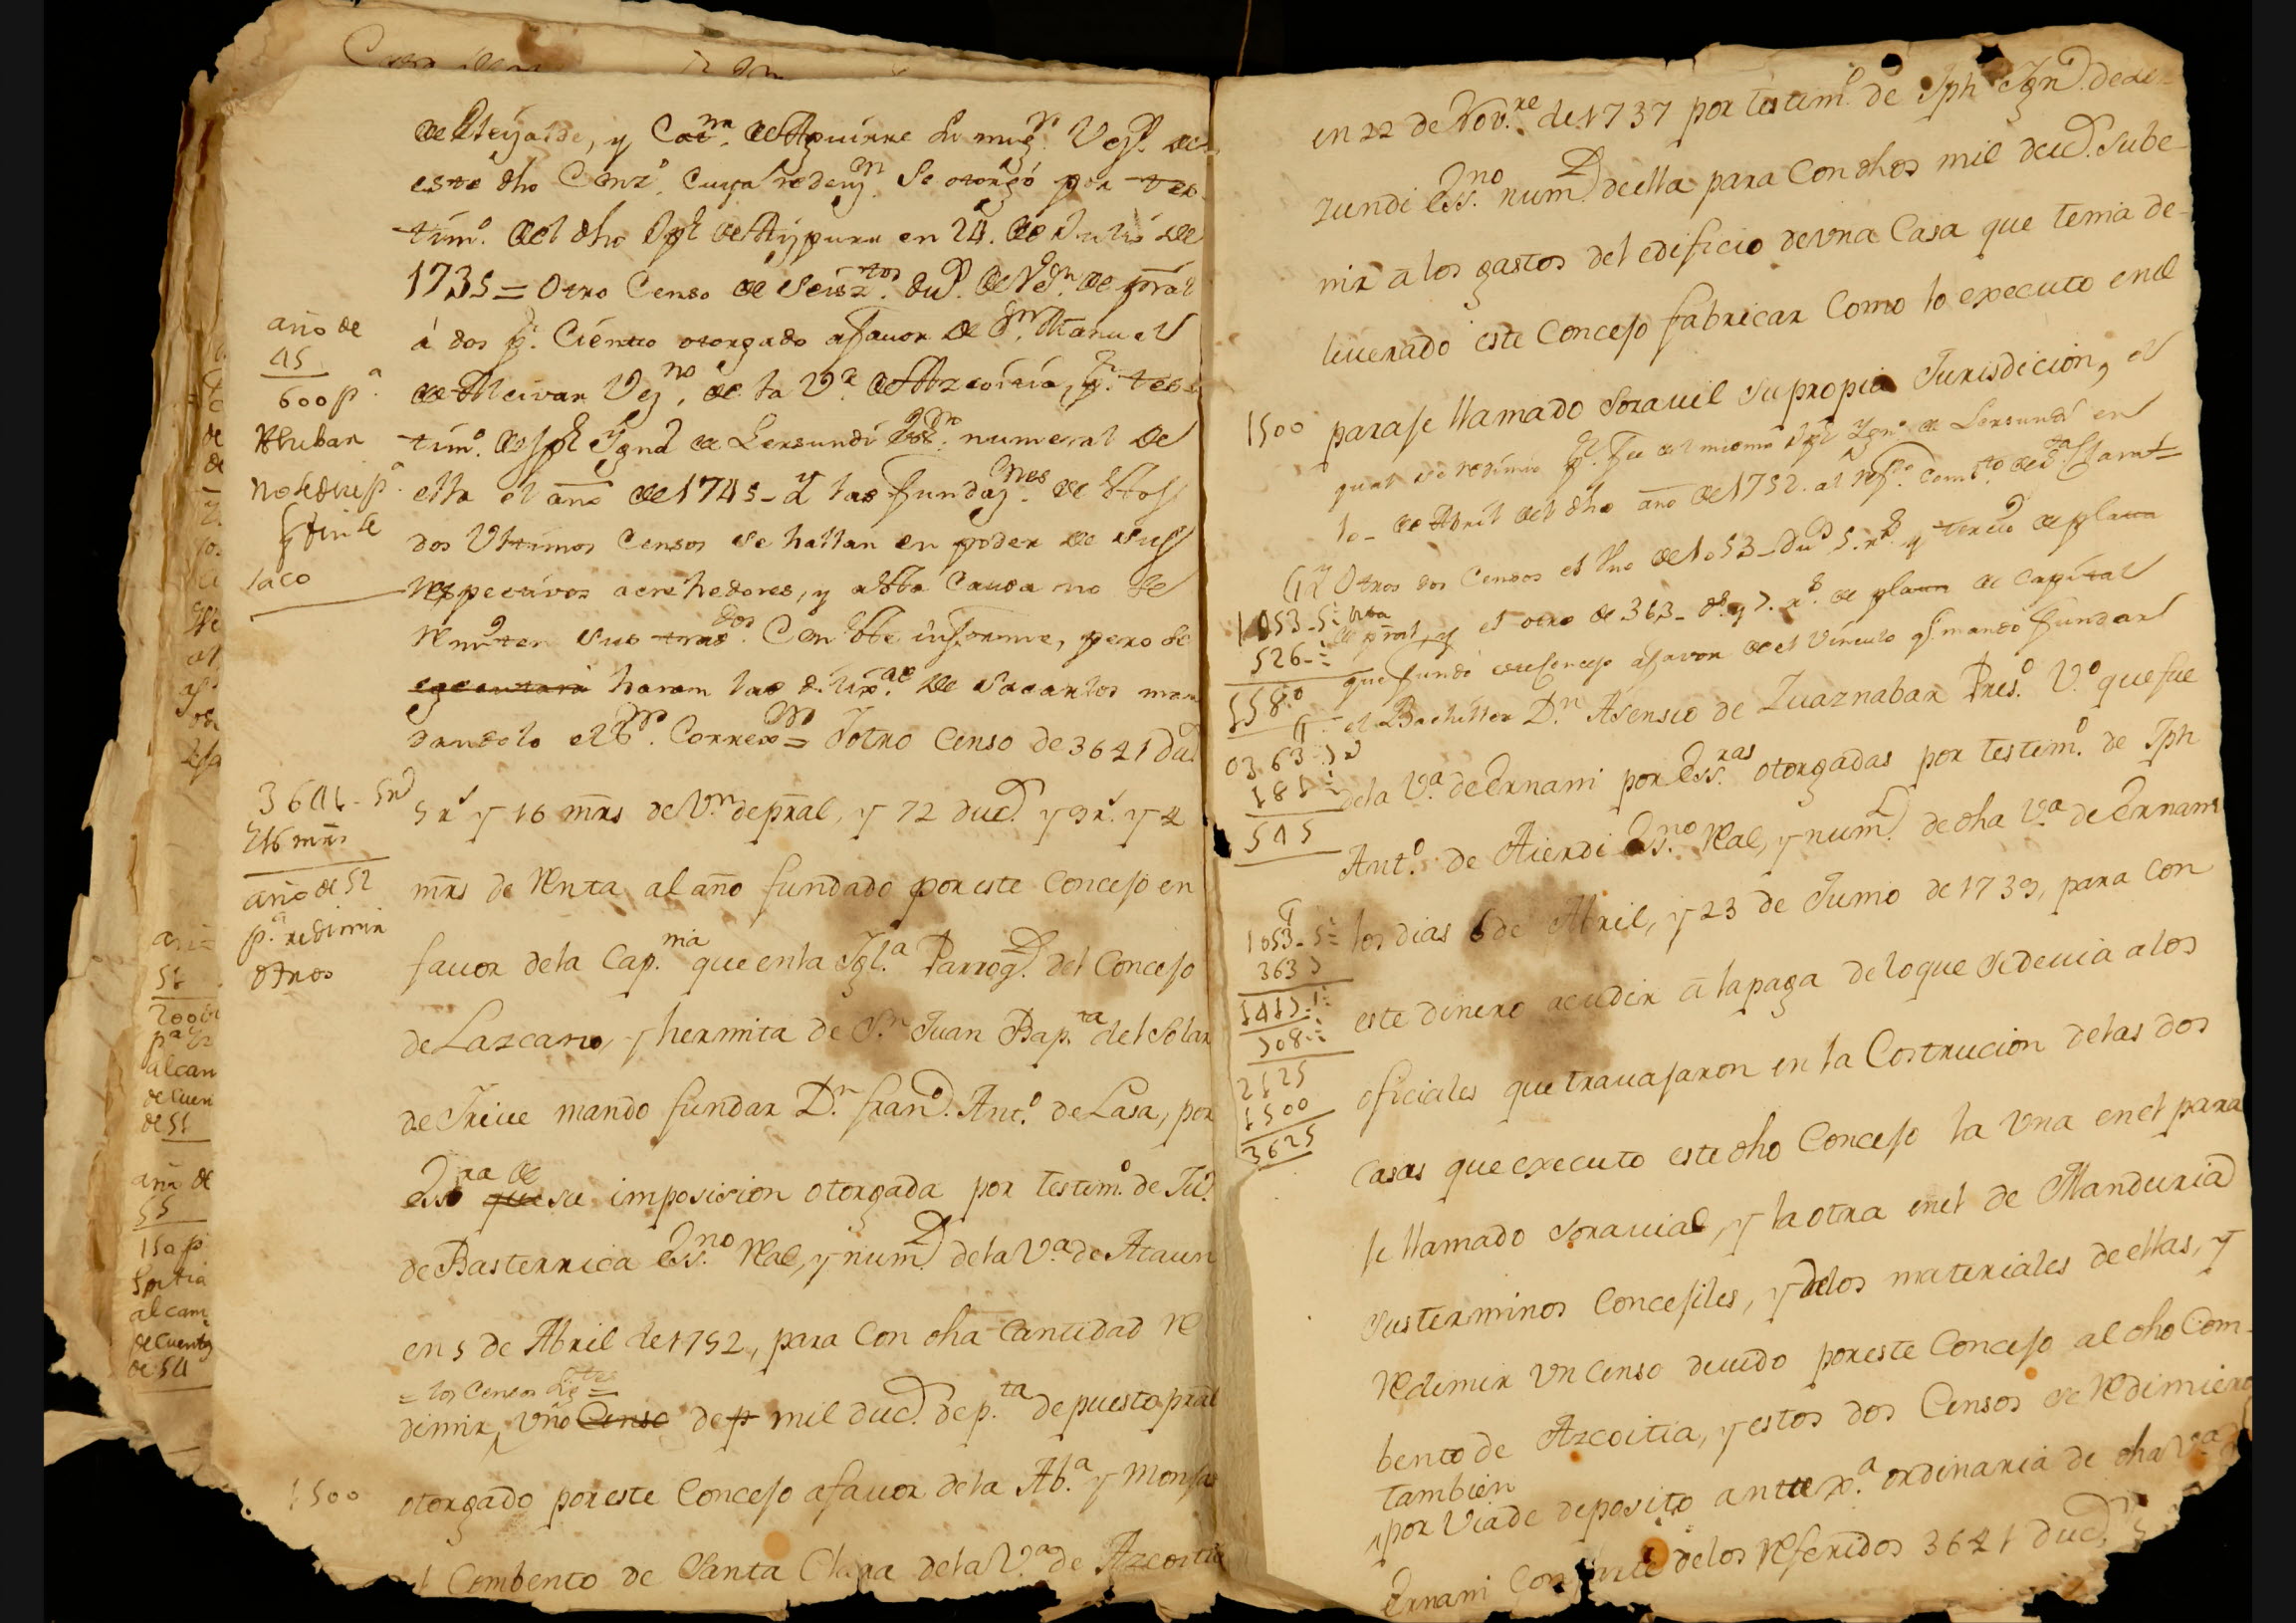 de Eleyalde, y Cat.na de Aguirre su mug.r Vez.s de
este dho Conz.o cuya redenz.n se otorgó por tes-
tim.o del dho Jph de Aizpuru en 24. de Julio de
1735 = Otro Censo de Seisz.tos du.s de V.n de pral
á dos p.r Ciento otorgado afavor de D.n Manuel
de Alcivar Vez.no de la V.a de Azcoitia, p.r tes-
tim.o de Jph Ygn.o de Lersundi Ess.no numeral de
ella el año de 1745 - Y las fundaz.nes de estos
dos Ultimos Censos se hallan en poder de sus
respectivos acrehedores, y a esta Causa no se
remiten sus trasdos. Con este informe, pero se
executara haran las dilix.as de sacarlos man
dandolo el S.or Correx.or = Yotro Censo de 3641 Du.s
5 r.s y 16 mrs de V.n de pral, y 72 duc.s y 9 r.s y 4
mrs de renta al año fundado por este Concejo en
favor de la Cap.nia que en la Igl.a Parrog.l del Concejo
de Lazcano, y hermita de S.n Juan Bap.ta del Solar
de Irive mando fundar D.n Fran.co Ant.o de Lasa, por
Ess.ra de que su imposicion otorgada por testim.o de Ju.o
de Basterrica Ess.no Real, y num.l de la V.a de Ataun
en 5 de Abril de 1752, para Con dha Cantidad re
= los Censos sig.tes =
dimir, uno Censo de p mil duc.s de p.ta de puesto pral
otorgado por este Concejo afavor de la Ab.a y Monjas
del Combento de Santa Clara de la V.a de Azcoitia
año de
45
600 p.a
no se due p.r
y fin se
saco
3641 - 5 r.s
y 16 mrs
año de 52
p.a redimir
otros
1500
51
alcan
de Cuen
de 51
55
150 p
alcan
de Cuenta
de 54
en 22 de Nov.re de 1737 por testim.o de Jph Ign.o de Ler-
zundi Ess.no num.l de ella para Con dhos mil duc.s Sube-
nir a los gastos del edificio de vna Casa que tenia de-
liuerado este Concejo fabricar Como lo executo en el
paraje llamado Sorauil su propia Jurisdicion, el
qual se redimio p.r fee del mismo Jph Ygn.o de Lersundi en
10 - de Abril del dho año de 1752. al ref.do Comb.to de S.ta Clara =
Y Otros dos Censos el Uno de 1053 - Du.s 5. r.s y tercio de plata
de pral, y el otro de 363 - d.s y 7. r.s de plata de Capital
que fundó este Concejo afavor de el Vinculo q.e mandó fundar
el Bachiller D.n Asensio de Zuaznabar Pres.o V.o que fue
de la V.a de Ernani por Ess.ras otorgadas por testim.o de Jph
Ant.o de Aierdi Ess.no Real, y num.l de dha V.a de Ernani
los dias 6 de Abril, y 23 de Junio de 1739, para con
este dinero acudir a la paga de lo que se deuia a los
oficiales que trauajaron en la Costrucion de las dos
Casas que executo este dho Concejo la vna en el para
je llamado Sorauial, y la otra en el de Manduria
sus terminos Concejiles, y de los materiales de ellas, y
redimir vn Censo deuido por este Concejo al dho Com-
bento de Azcoitia, y estos dos Censos se redimieron
tambien
por via de deposito ante la x.a ordinaria de dha V.a de
Ernani Con parte de los referidos 3641 duc.s 5
1500
1053 - 5
526 -
1580
0363 - 7
181
545
1053 - 5
363 7
1417 -
708
2125
1500
3625